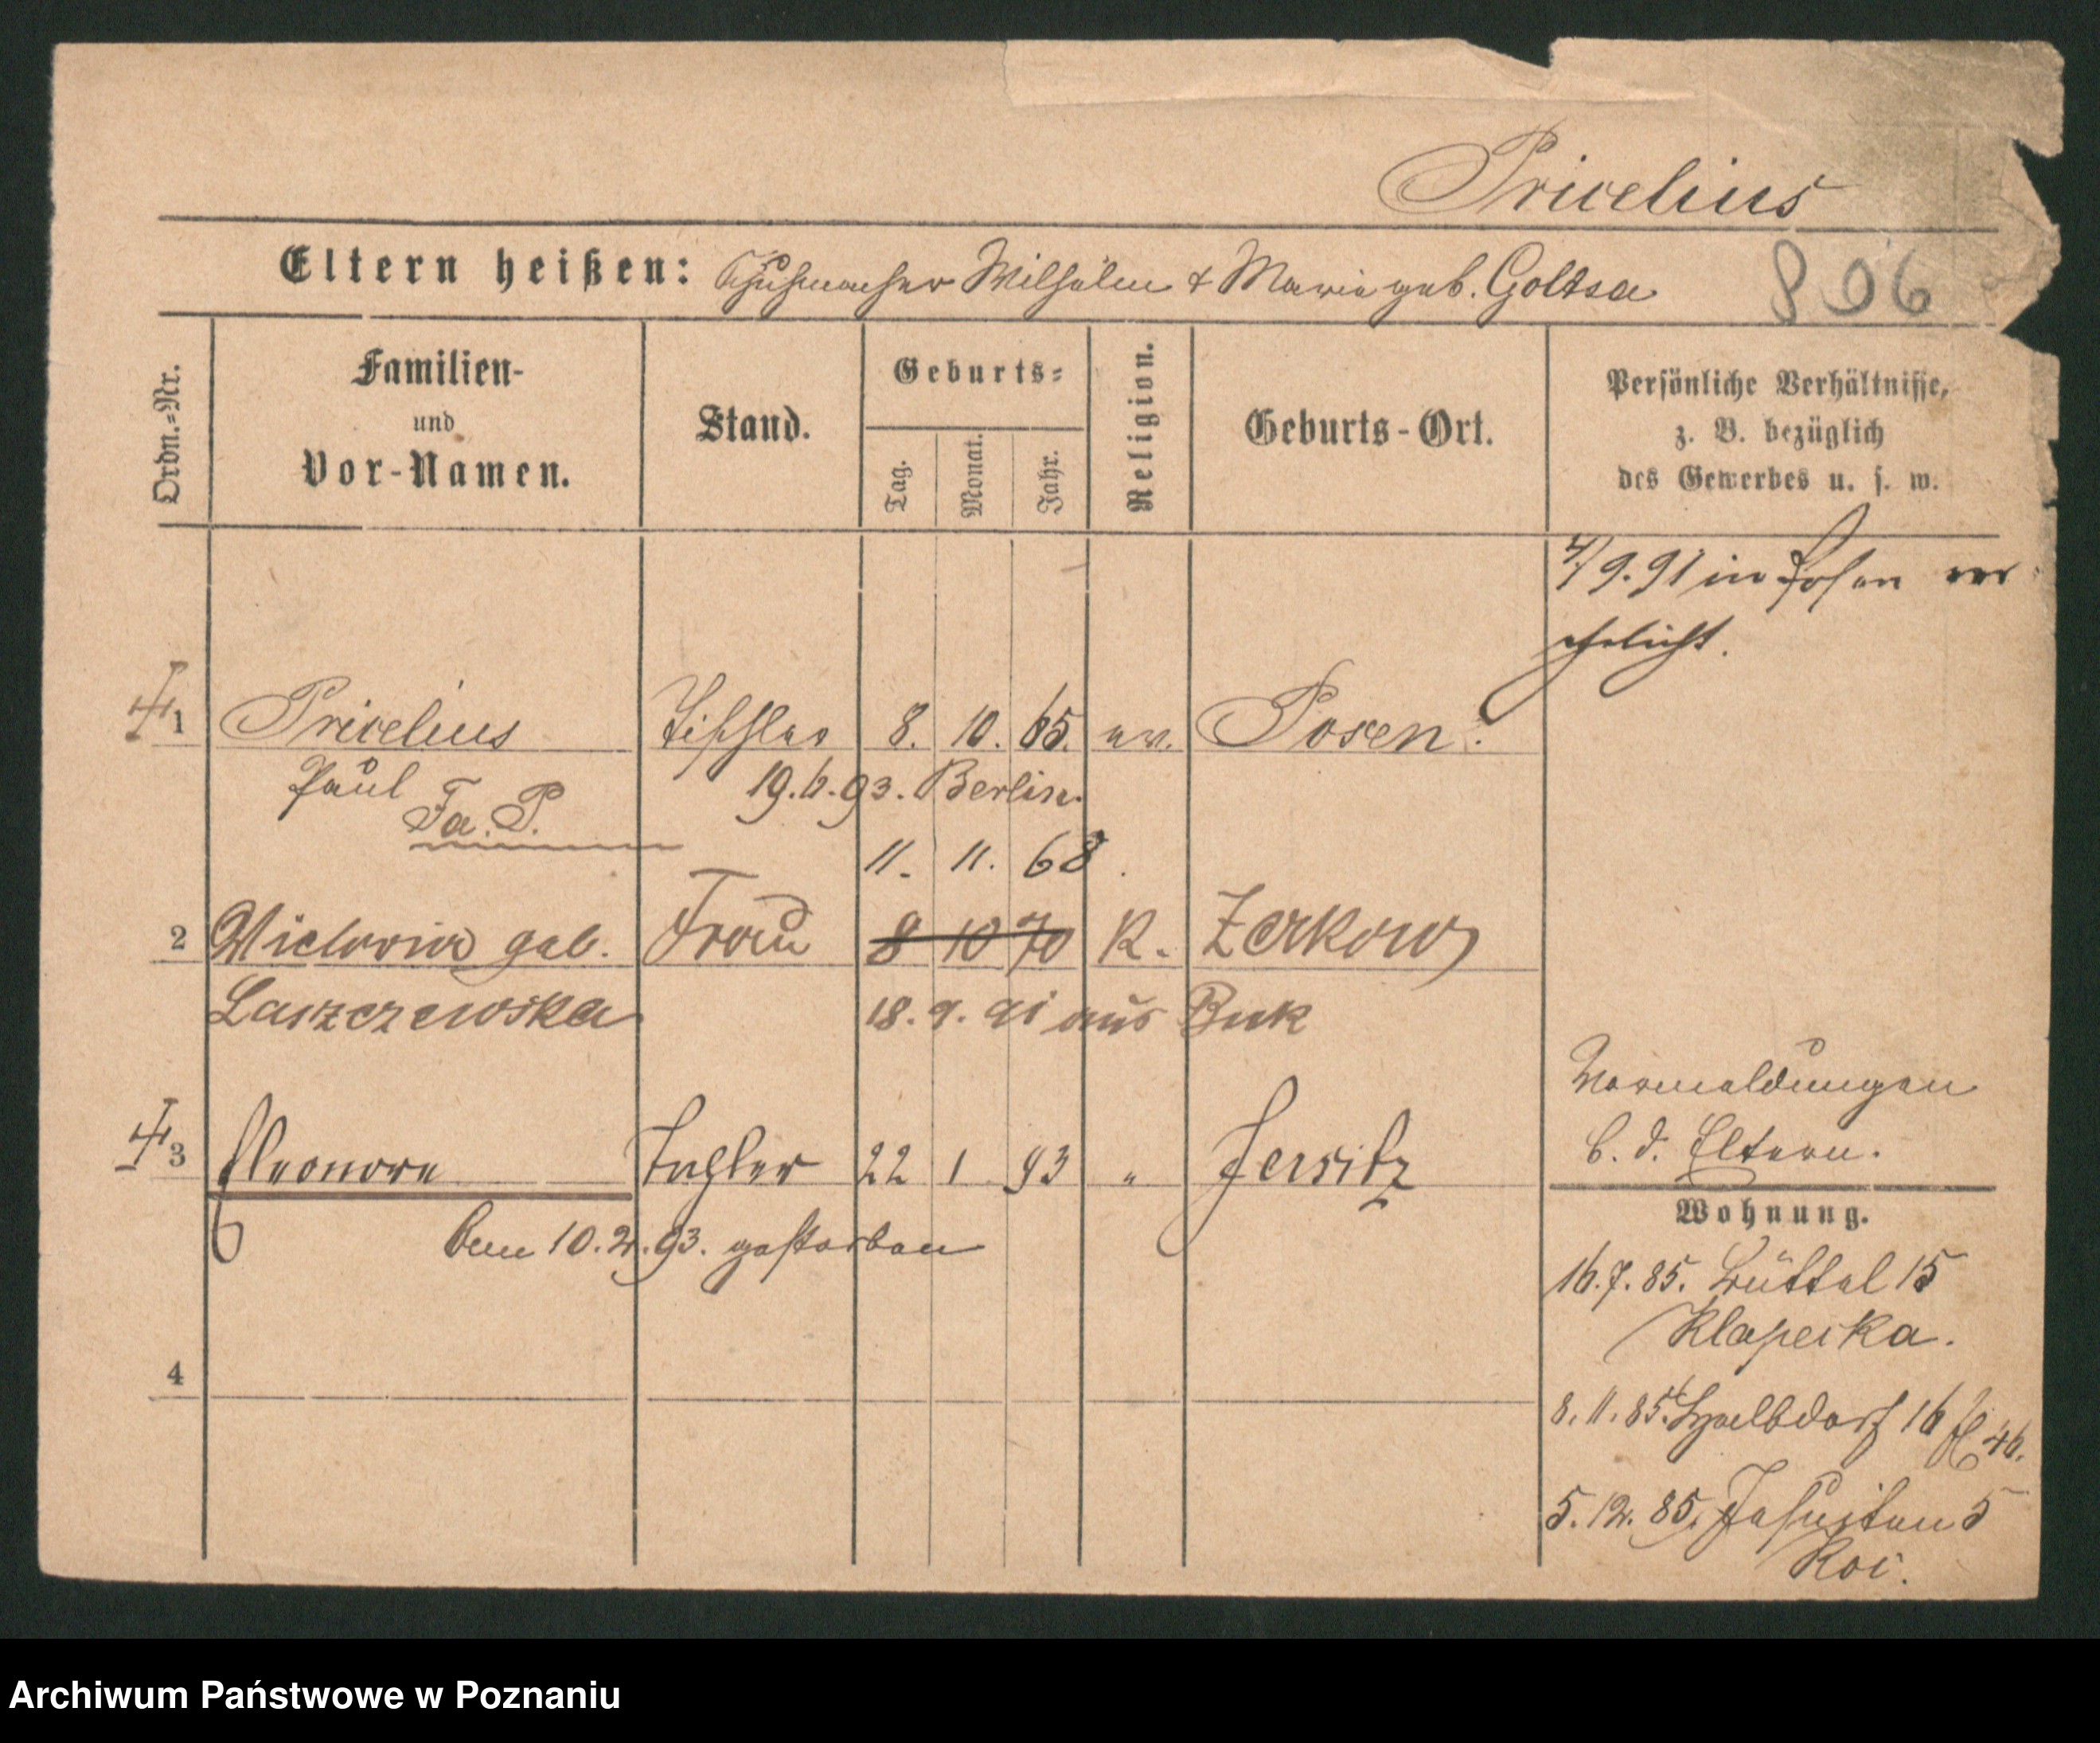 Pricelius
Eltern heißen: Schuhmacher Wilhelm & Marie geb. Goltsa
806
Ordn.-Nr.
Familien-
und
Vor-Namen.
Stand.
Geburts-
Tag.
Monat.
Jahr.
Religion.
Geburts-Ort.
Persönliche Verhältnisse,
z. B. bezüglich
des Gewerbes u. s. w.
9.91 in Posen ver
ehelicht.
1 Pricelius Tischler 8. 10. 65. ev. Posen.
Paul 19.6.93. Berlin.
Fa. P.
11. 11. 68.
2 Victoria geb. Frau 8 10 70 K. Zerkow
Laszczewska 18. 9. 91 aus Buk
Vermeldungen
b. d. Eltern.
3 Eleonore Tochter 22 1 93 " Jersitz
Wohnung.
den 10.2.93. gestorben
16.7.85. Büttel 15
Klapeika.
4
8.11.85. Halbdorf 16 46.
5.12.85. Jesuiten 5
Roi.
Archiwum Państwowe w Poznaniu